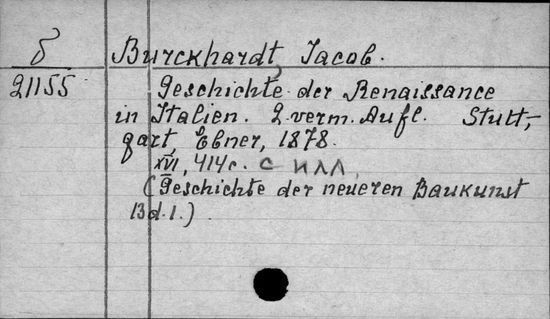 δ Burckhardt, Jacob.
21155 Geschichte der Renaissance
in Italien. 2.verm. Aufl. Stutt-
gart, Ebner, 1878.
XVI, 414 c. с илл.
(Geschichte der neueren Baukunst
Bd. 1.)